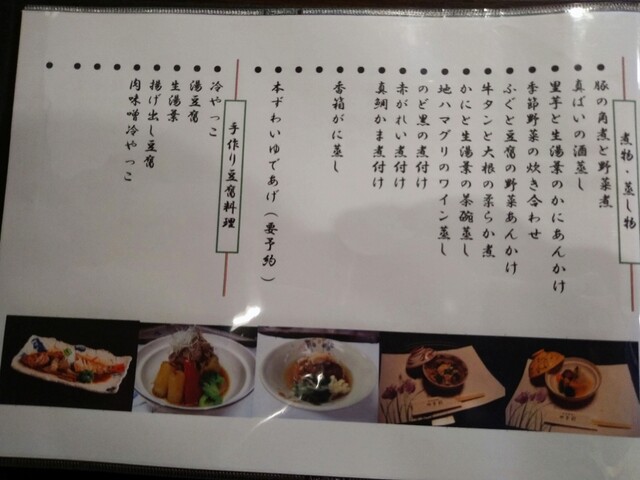 煮物・蒸し物
豚の角煮と野菜煮
真ばいの酒蒸し
里芋と生湯葉のかにあんかけ
季節野菜の炊き合わせ
ふぐと豆腐の野菜あんかけ
牛タンと大根の柔らか煮
かにと生湯葉の茶碗蒸し
地ハマグリのワイン蒸し
のど黒の煮付け
赤がれい煮付け
真鯛かま煮付け
香箱がに蒸し
本ずわいゆであげ（要予約）
手作り豆腐料理
冷やっこ
湯豆腐
生湯葉
揚げ出し豆腐
肉味噌冷やっこ